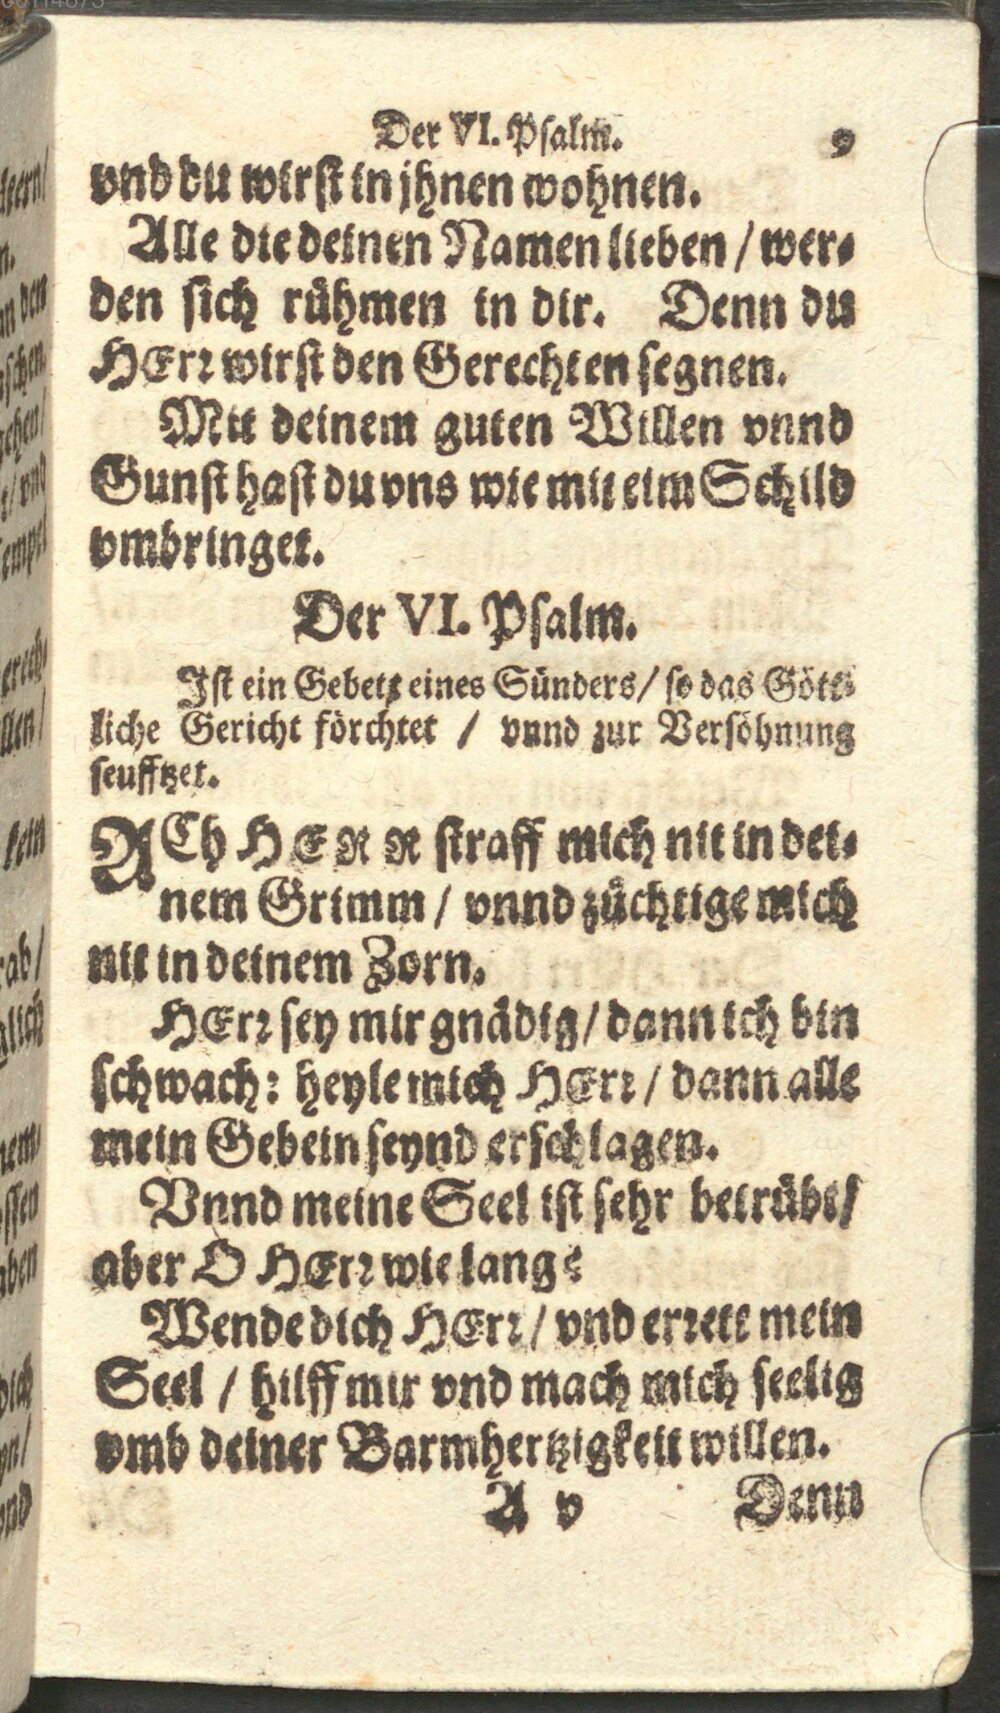 Der VI. Psalm. 9
vnd du wirst in jhnen wohnen.
Alle die deinen Namen lieben / wer-
den sich rühmen in dir. Denn du
HErr wirst den Gerechten segnen.
Mit deinem guten Willen vnnd
Gunst hast du vns wie mit eim Schild
vmbringet.
Der VI. Psalm.
Ist ein Gebetz eines Sünders / so das Gött-
liche Gericht förchtet / vnnd zur Versöhnung
seufftzet.
ACh HERR straff mich nit in dei-
nem Grimm / vnnd züchtige mich
nit in deinem Zorn.
HErr sey mir gnädig / dann ich bin
schwach: heyle mich HErr / dann alle
mein Gebein seynd erschlagen.
Vnnd meine Seel ist sehr betrübt /
aber O HErr wie lang?
Wende dich HErr / vnd errett mein
Seel / hilff mir vnd mach mich seelig
vmb deiner Barmhertzigkeit willen.
A v Denn